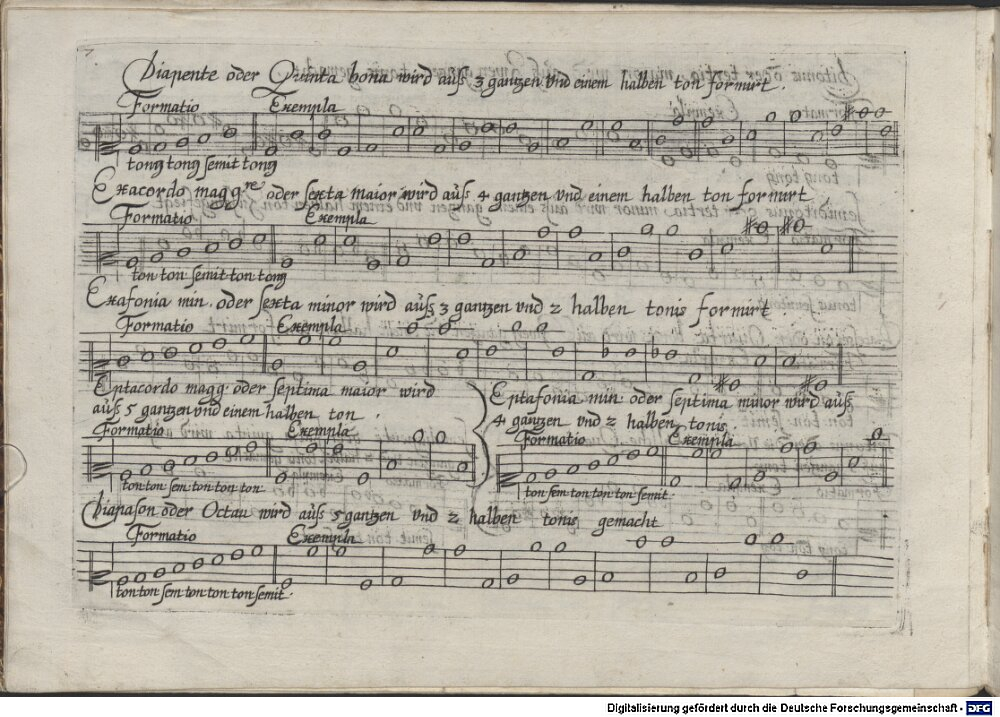 Diapente oder Quinta bona wird auß 3 gantzen vnd einem halben ton formirt.
Formatio Exempla
tong tong semit tong
Exacordo magg.re oder sexta maior wird auß 4 gantzen vnd einem halben ton formirt
Formatio Exempla
ton ton semit ton tong
Exafonia min. oder sexta minor wird auß 3 gantzen vnd 2 halben tonis formirt
Formatio Exempla
Eptacordo magg: oder septima maior wird
auß 5 gantzen vnd einem halben ton.
Formatio Exempla
ton ton sem ton ton ton
Eptafonia min. oder septima minor wird auß
4 gantzen vnd 2 halben tonis.
Formatio Exempla
ton sem ton ton ton semit.
Diapason oder Octau wird auß 5 gantzen vnd 2 halben tonis gemacht
Formatio Exempla
ton ton sem ton ton ton semit.
Digitalisierung gefördert durch die Deutsche Forschungsgemeinschaft - DFG